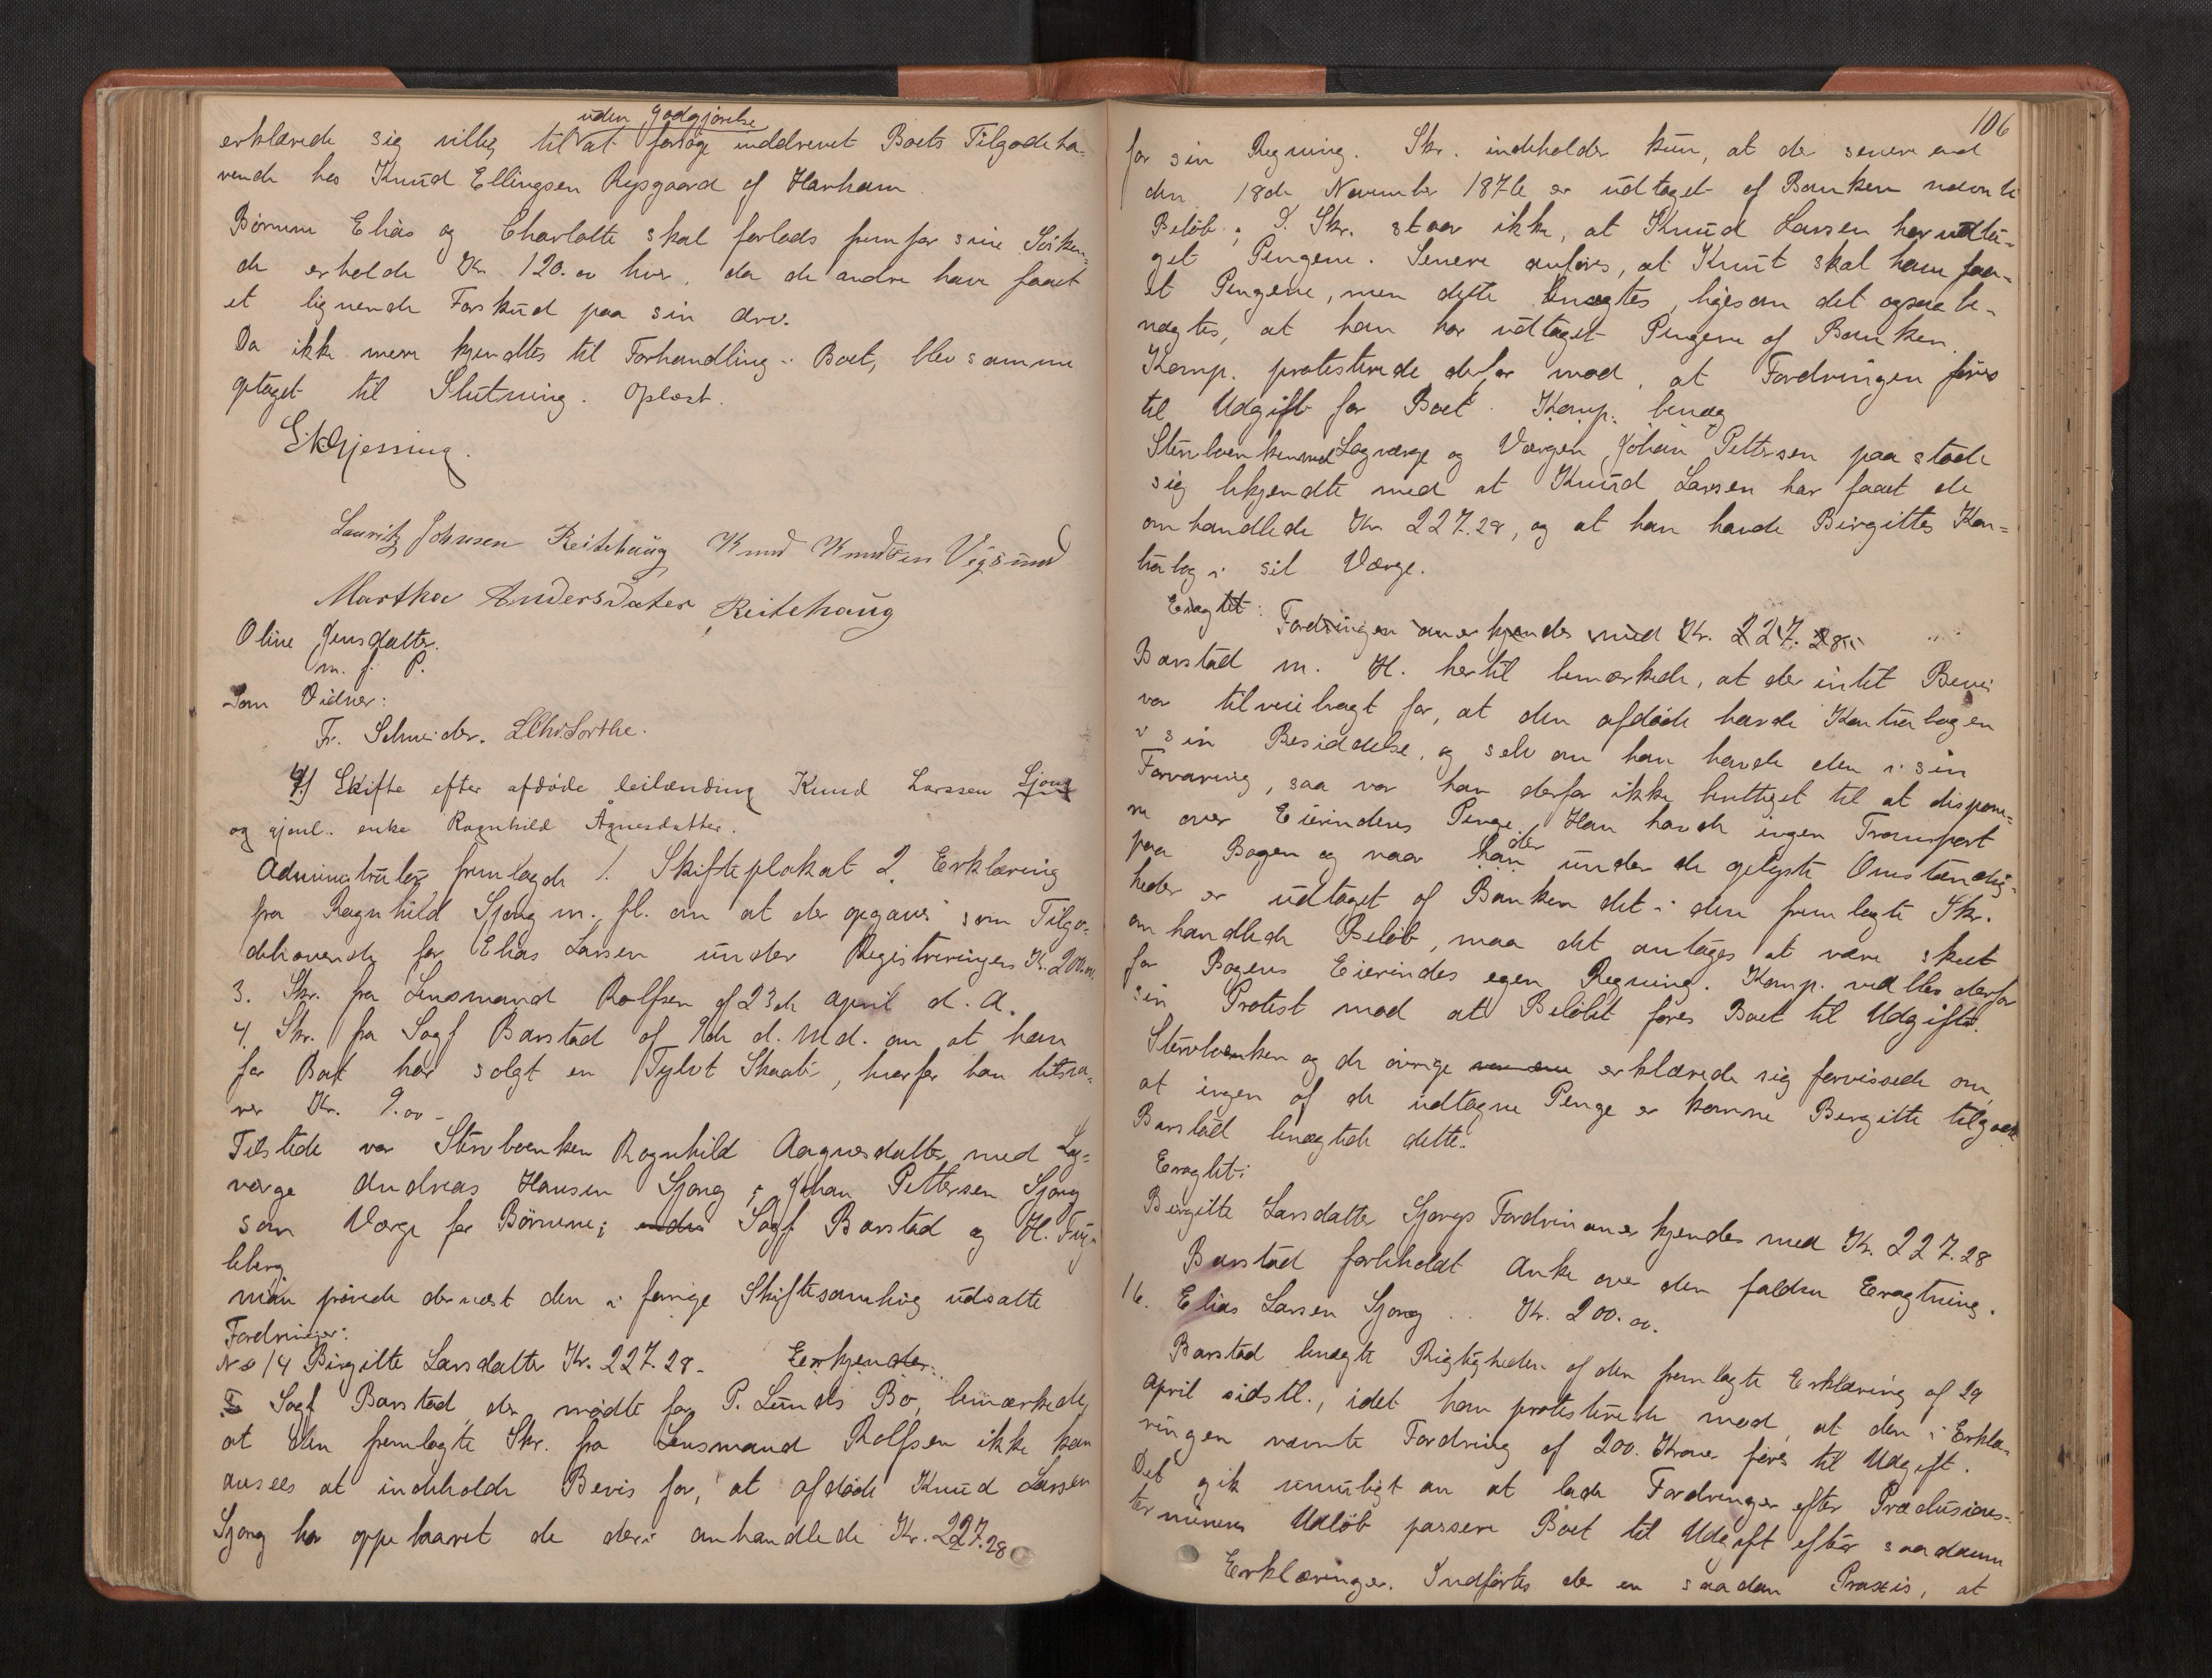 uden Godgjørelse
erklærede sig villig til at forsøge inddrevet Boets Tilgodeha-
vende hos Knud Ellingsen Rypgaard af Harham
Børnene Elias og Charlotte skal forlods fremfor sine Sösken-
de erholde Kr 120.00 hver, da de andre have faaet
et lignende Forskud paa sin Arv.
Da ikke mere kjendtes til Forhandling i Boet, blev samme
optaget til Slutning. Oplæst.
E. K. Hjessing.
Lauritz Johnsen Reitehaug Knud Knudsen Vigsund
Martha Andersdater Reitehaug
Oline Jensdatter.
m. f. P.
Som Vidner:
Fr. Schneider. L Chr. Sorthe.
4) Skifte efter afdöde leilænding Knud Larssen Sjong
og gjenl. enke Ragnhild Ågnesdatter.
Administrator fremlagde 1. Skifteplakat 2. Erklæring
fra Ragnhild Sjong m. fl. om at der opgaves som Tilgo-
dehavende for Elias Larsen under Registreringen Kr. 200.00.
3. Skr. fra Lensmand Rolfsen af 23de April d. A.
4. Skr. fra Sagf Barstad af 9de d. Md. om at han
for Boet har solgt en Tylvt Skaati, hvorfor han tilsva-
rer Kr. 9.00 -
Tilstede var Stervboenken Ragnhild Aagnesdatter med Lag-
værge Andreas Hansen Sjong; Johan Pettersen Sjong
som Værge for Børnene; Sagf Barstad og H. Fug-
leberg
man prøvede dernæst den i forrige Skiftesamling udsatte
Fordringer:
No 14 Birgitte Larsdatter Kr. 227.28 - Erkjender:
Sagf Barstad, der mødte for P. Lunds Bo, bemærkede,
at den fremlagte Skr. fra Lensmand Rolfsen ikke kan
ansees at indeholde Bevis for, at afdöde Knud Larsen
Sjong har oppebaaret de deri omhandlede Kr. 227.28
106
for sin Regning. Skr. indeholder kun, at der senere end
den 18de November 1876 er udtaget af Banken nævnte
Beløb; I Skr. staar ikke, at Knud Larsen har udta-
get Pengene. Senere anføres, at Knut skal have faa-
et Pengene, men dette benægtes, ligesom det ogsaa be-
nægtes, at han har udtaget Pengene af Banken.
Komp. protesterede derfor mod, at Fordringen føres
til Udgift for Boet. Komp. benæg
Stervboenken med Lagværge og Værgen Johan Pettersen paastode
sig bekjendte med at Knud Larsen har faaet de
omhandlede Kr 227.28, og at han havde Birgittes Kon-
trabog i sit Værge.
Eragtet:
Fordringen anerkjendes med Kr. 227.28
Barstad m. H. hertil bemærkede, at der intet Bevis
var tilveiebragt for, at den afdöde havde Kontrabogen
i sin Besiddelse, og selv om han havde den i sin
Forvaring, saa var han derfor ikke berettiget til at dispone-
re over Eierindens Penge. Han havde ingen Transport
paa Bogen og naar der under de oplyste Omstændig-
heder er udtaget af Banken det i den fremlagte Skr.
omhandlede Beløb, maa det antages at være skeet
for Bogens Eierindes egen Regning. Komp. vedblev derfor
sin Protest mod at Beløbet føres Boet til Udgift.
Stervboenken og de øvrige erklærede sig forvissede om,
at ingen af de udtagne Penge er komne Birgitte tilgode
Barstad benægtede dette.
Eragtet:
Birgitte Larsdatter Sjongs Fordrin anerkjendes med Kr. 227.28
Barstad forbeholdt Anke over den faldne Eragtning.
16. Elias Larsen Sjong .. Kr. 200.00.
Barstad benægte Rigtigheden af den fremlagte Erklæring af 29
April sidstl., idet han protesterede mod, at den i Erklæ-
ringen nævnte Fordring af 200. Kroner føres til Udgift.
Det gik umuligt an at lade Fordringer efter Præclusions-
terminens Udløb passere Boet til Udgift efter saadanne
Erklæringer. Indførtes der en saadan Praxis, at